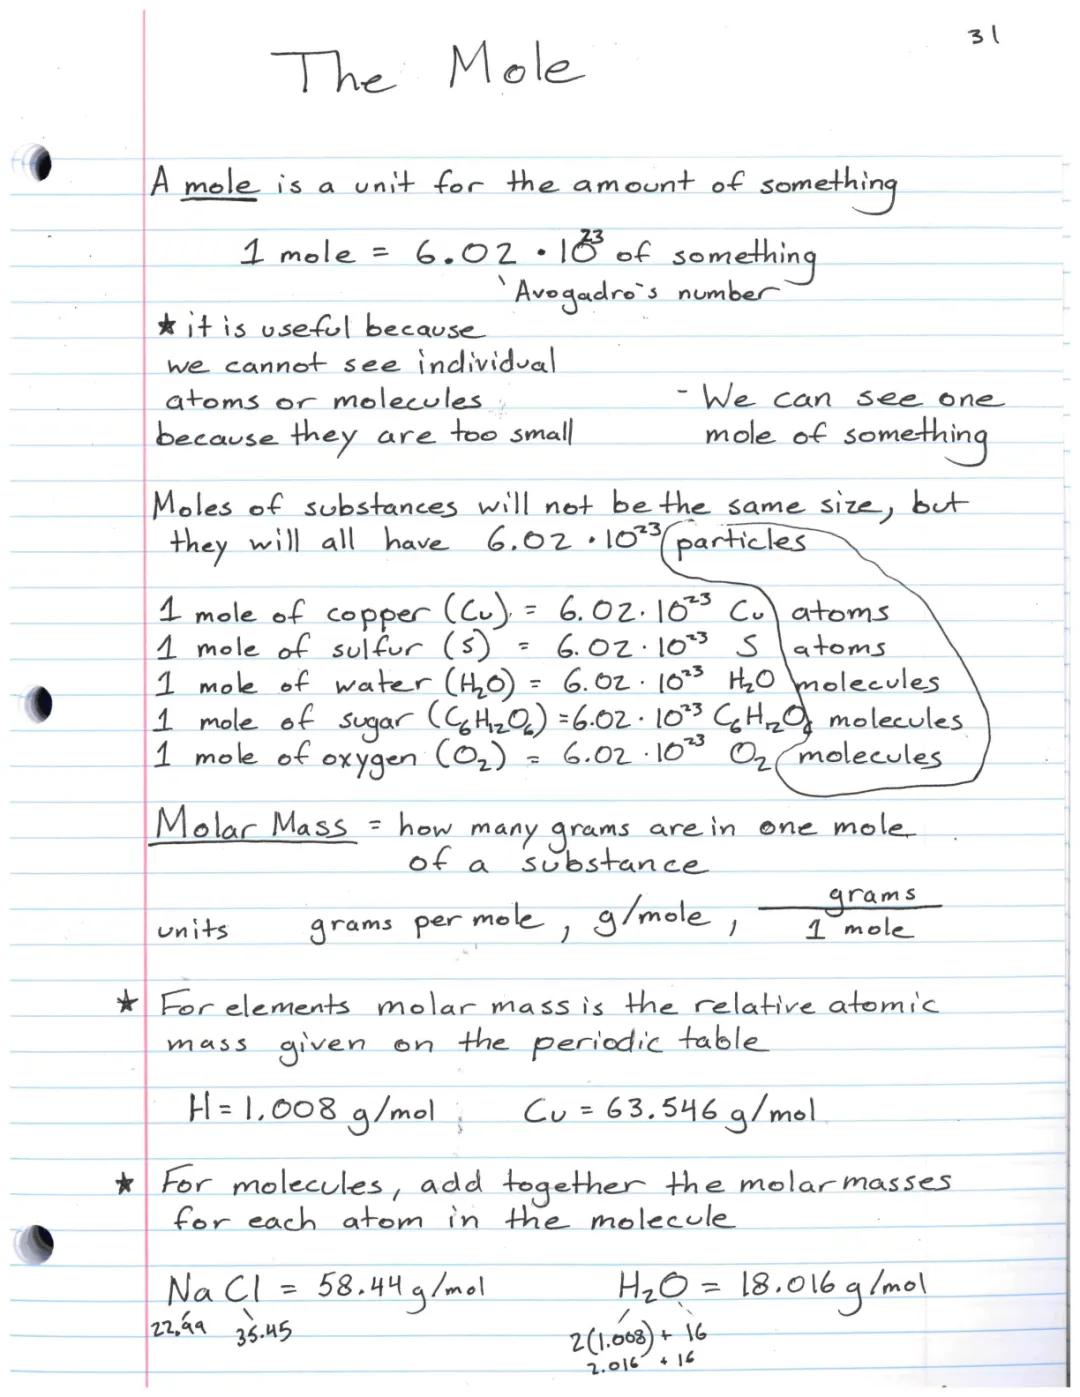 31
The Mole
A mole is a unit for the amount of something
1 mole = 6.02 · 10²³ of something
Avogadro's number
★ it is useful because
we cannot see individual
atoms or molecules
because they are too small
- We can see one
mole of something
Moles of substances will not be the same size, but
they will all have 6.02 · 10²³ particles
1 mole of copper (Cu) = 6.02 · 10²³ Cu atoms
1 mole of sulfur (S) = 6.02 · 10²³ S atoms
1 mole of water (H₂O) = 6.02 · 10²³ H₂O molecules
1 mole of sugar (C₆H₁₂O₆) = 6.02 · 10²³ C₆H₁₂O₆ molecules
1 mole of oxygen (O₂) = 6.02 · 10²³ O₂ molecules
Molar Mass = how many grams are in one mole
of a substance
units grams per mole, g/mole, grams / 1 mole
★ For elements molar mass is the relative atomic
mass given on the periodic table
H = 1.008 g/mol Cu = 63.546 g/mol
★ For molecules, add together the molar masses
for each atom in the molecule
NaCl = 58.44 g/mol H₂O = 18.016 g/mol
22.99 35.45 2(1.008) + 16
2.016 + 16